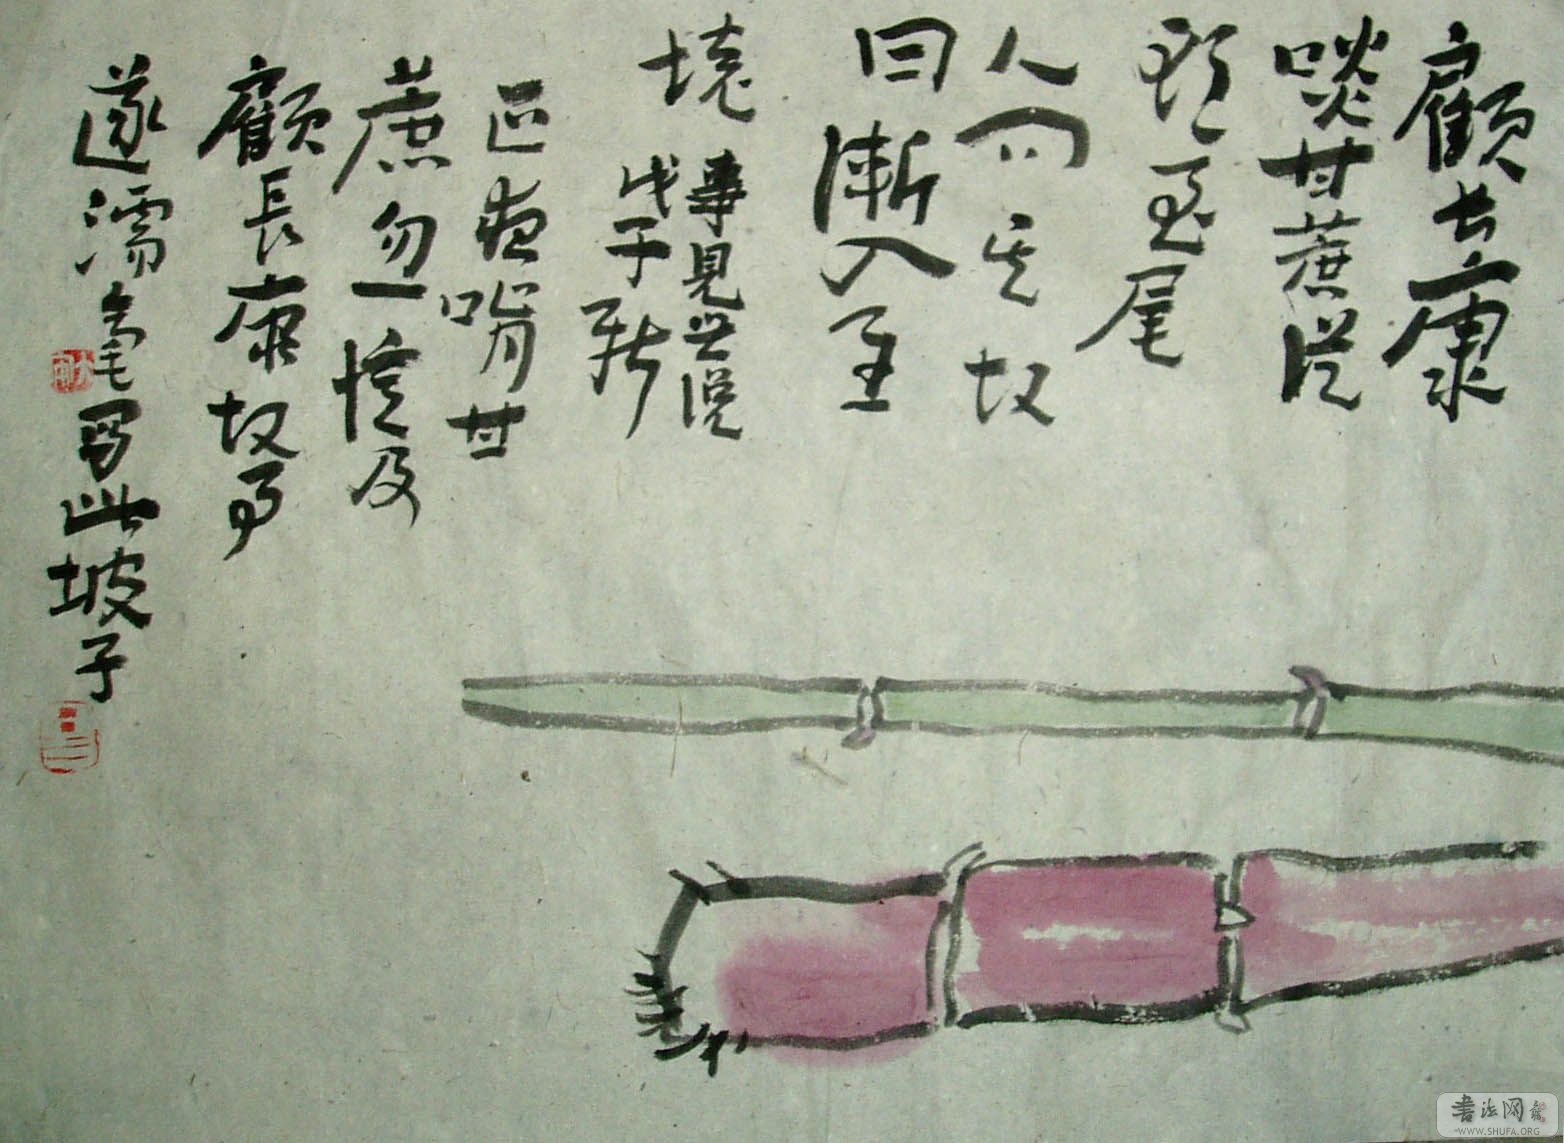 顧長康
啖甘蔗從
頭至尾
人問其故
曰漸入至
境
事見世說
戊子新
正夜啃甘
蔗忽一憶及
顧長康故事
遂濡毫寫此坡子
書法网
WWW.SHUFA.ORG